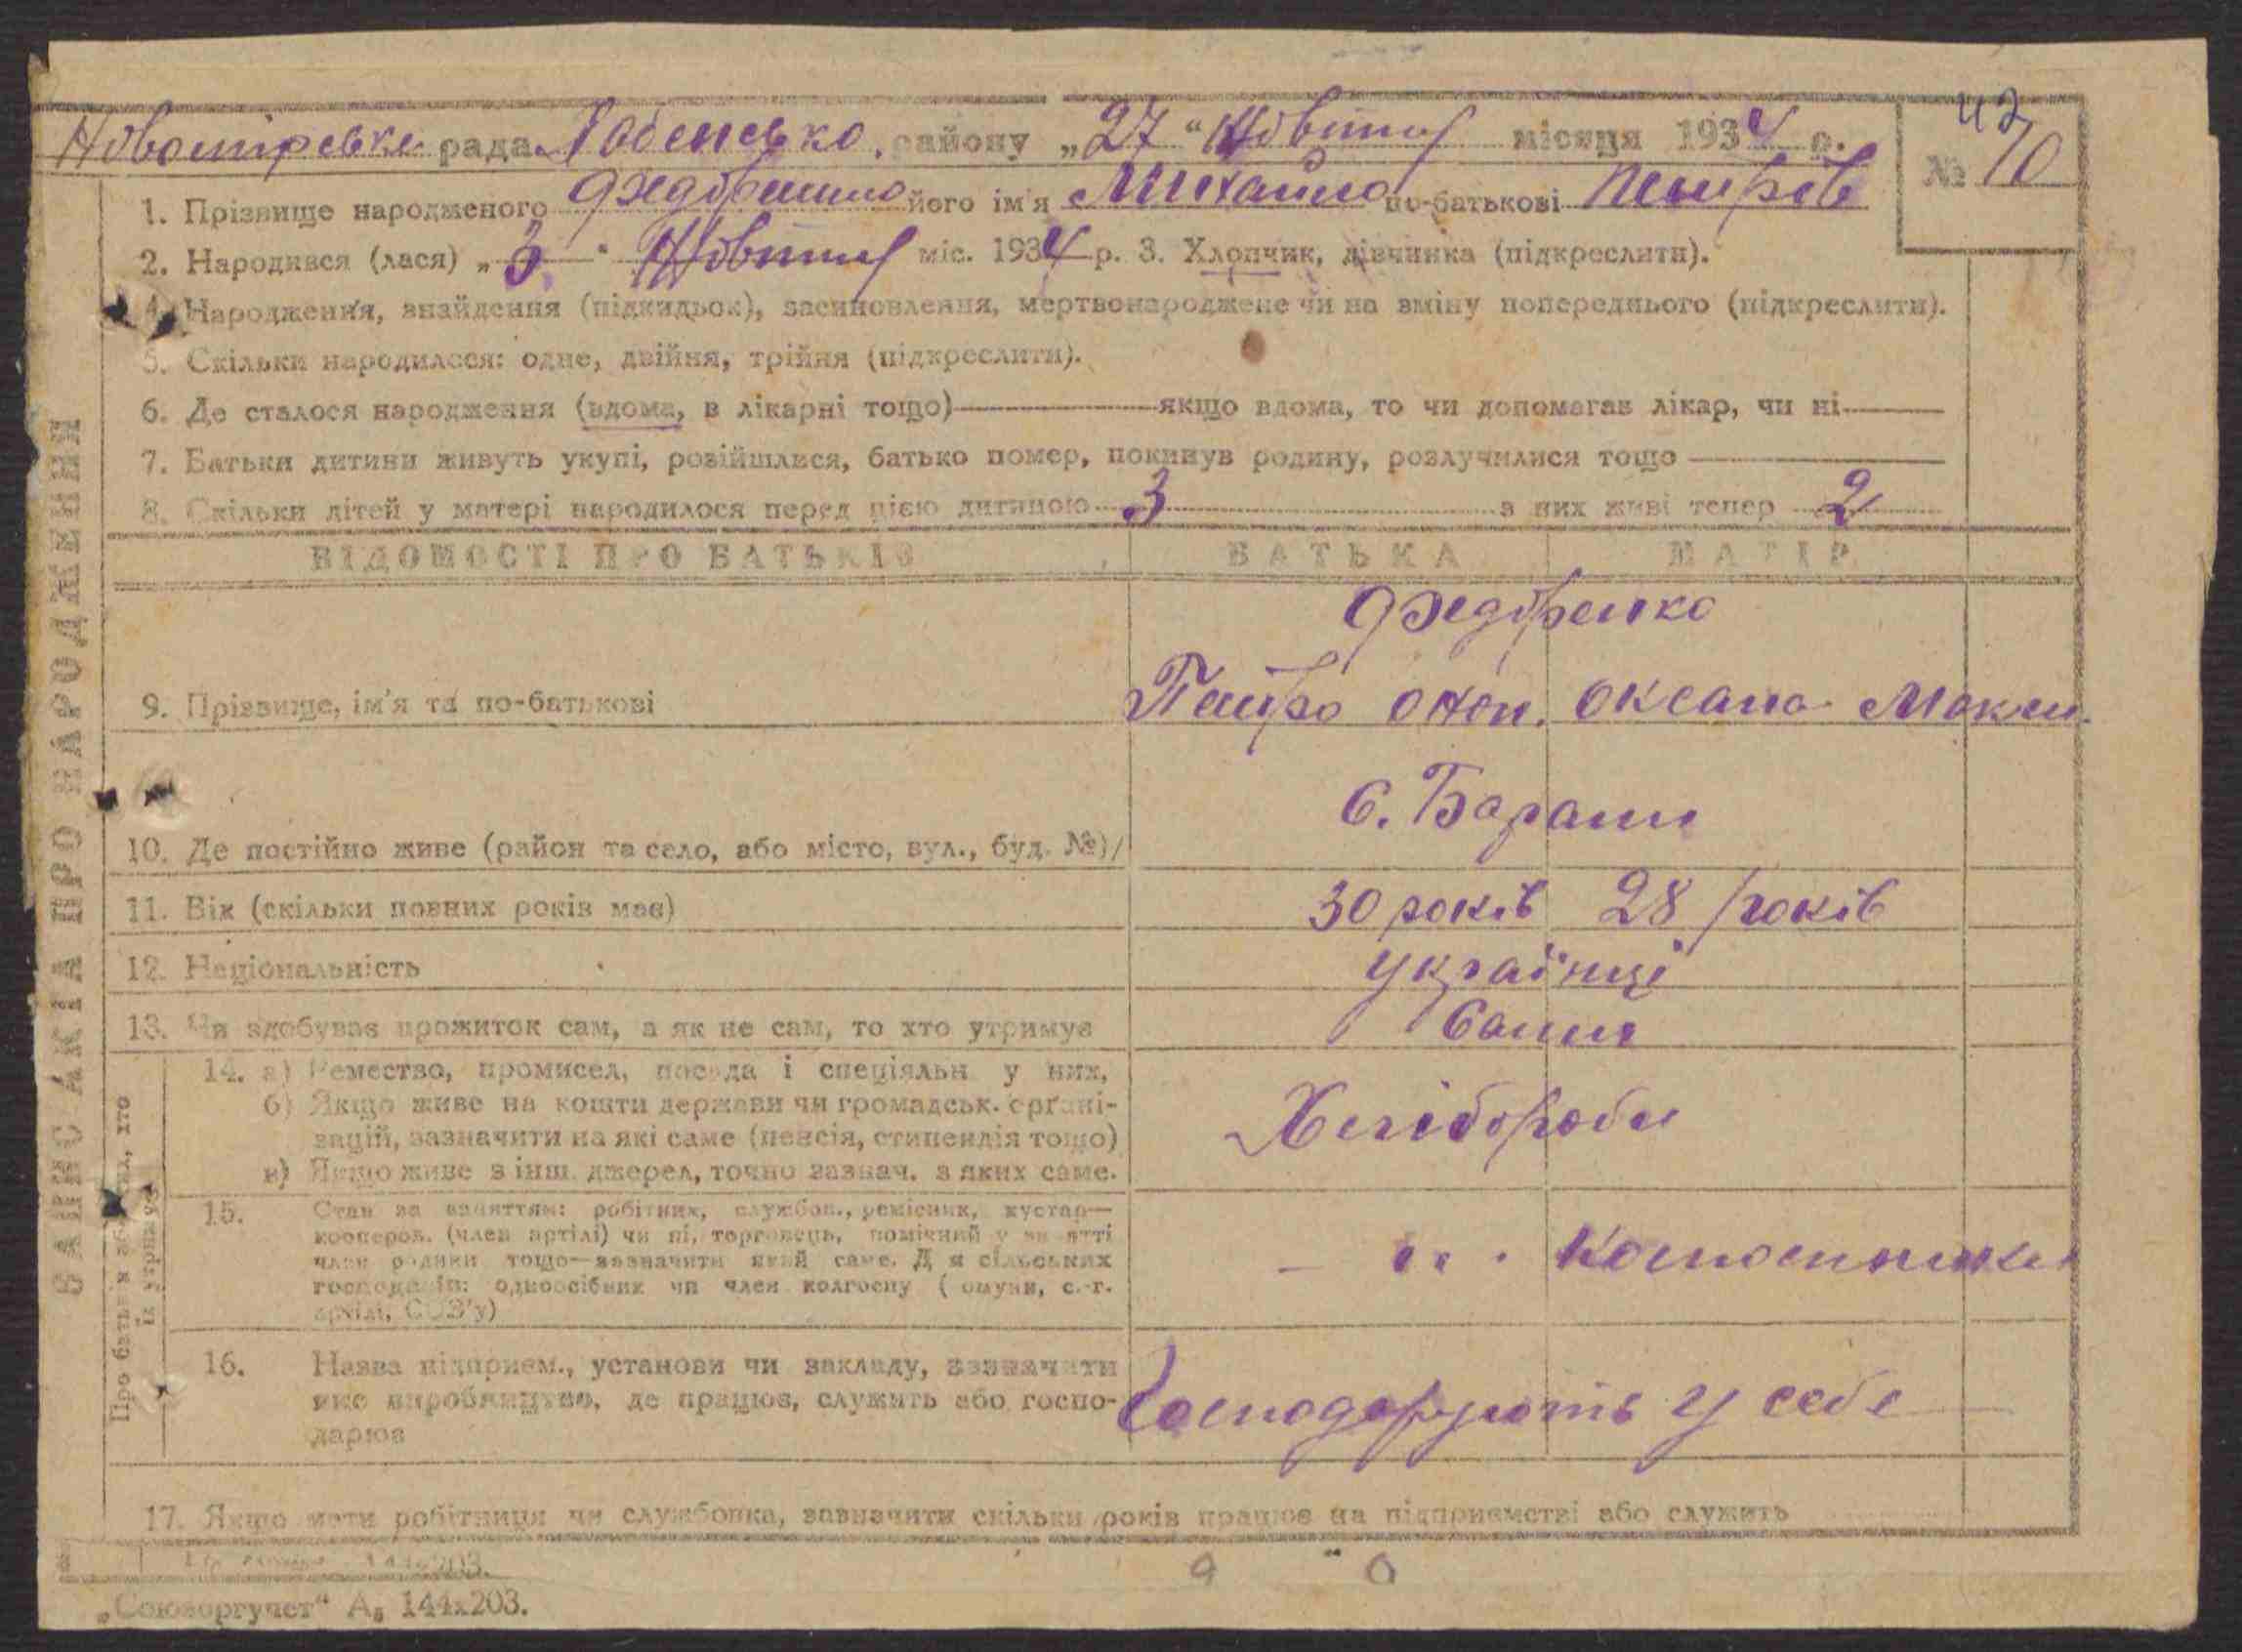 42
рада района „27“ Жовтня місяця 1934 р. № 10
1. Прізвище народженого Федоренко його ім'я Михайло по-батькові Петров
2. Народився (лася) „3“ Жовтня міс. 1934 р. 3. Хлопчик, дівчинка (підкреслити).
4. Народження, знайдення (підкидьок), засиновлення, мертвонароджене чи на зміну попереднього (підкреслити).
5. Скільки народилося: одне, двійня, трійня (підкреслити).
6. Де сталося народження (вдома, в лікарні тощо) якщо вдома, то чи допомагав лікар, чи ні
7. Батьки дитини живуть укупі, розійшлися, батько помер, покинув родину, розлучилися тощо
8. Скільки дітей у матері народилося перед цією дитиною 3 з них живі тепер 2
ВІДОМОСТІ ПРО БАТЬКІВ БАТЬКА МАТІР
Федоренко
9. Прізвище, ім'я та по-батькові Петро Оксана Макси.
С. Барани
10. Де постійно живе (район та село, або місто, вул., буд. №)
11. Вік (скільки повних років має) 30 років 28 років
12. Національність українці
13. Чи здобуває прожиток сам, а як не сам, то хто утримує Сами
14. а) Ремество, промисел, посада і спеціяльн у них,
б) Якщо живе на кошти держави чи громадськ. органі-
зацій, зазначити на які саме (пенсія, стипендія тощо)
в) Якщо живе з інш. джерел, точно зазнач. з яких саме.
Хлібороби
15. Стан за заняттям: робітник, службов., ремісник, кустар—
кооперов. (член артілі) чи ні, торговець, помічний у занятті
член родини тощо—зазначити який саме. Для сільських
господарів: одноосібник чи член колгоспу (комуни, с.-г.
артілі, СОЗ'у)
16. Назва підприєм., установи чи закладу, зазначити
яке виробництво, де працює, служить або госпо-
дарює
Господарюють у себе
17. Якщо мати робітниця чи службовка, зазначити скільки років працює на підприємстві або служить
„Союзоргучет“ А₅ 144x203.
ЗАПИС АКТА ПРО НАРОДЖЕННЯ
Про батьків або тих, хто
їх утримує